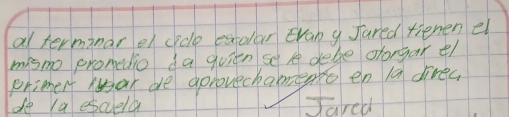 al termonar el ciclo escolar Evan y Jared tienen el
mismo promedio ¿a quién se le debe otorgar el
primer lugar de aprovechamiento en la direc
de la escuela
Jared